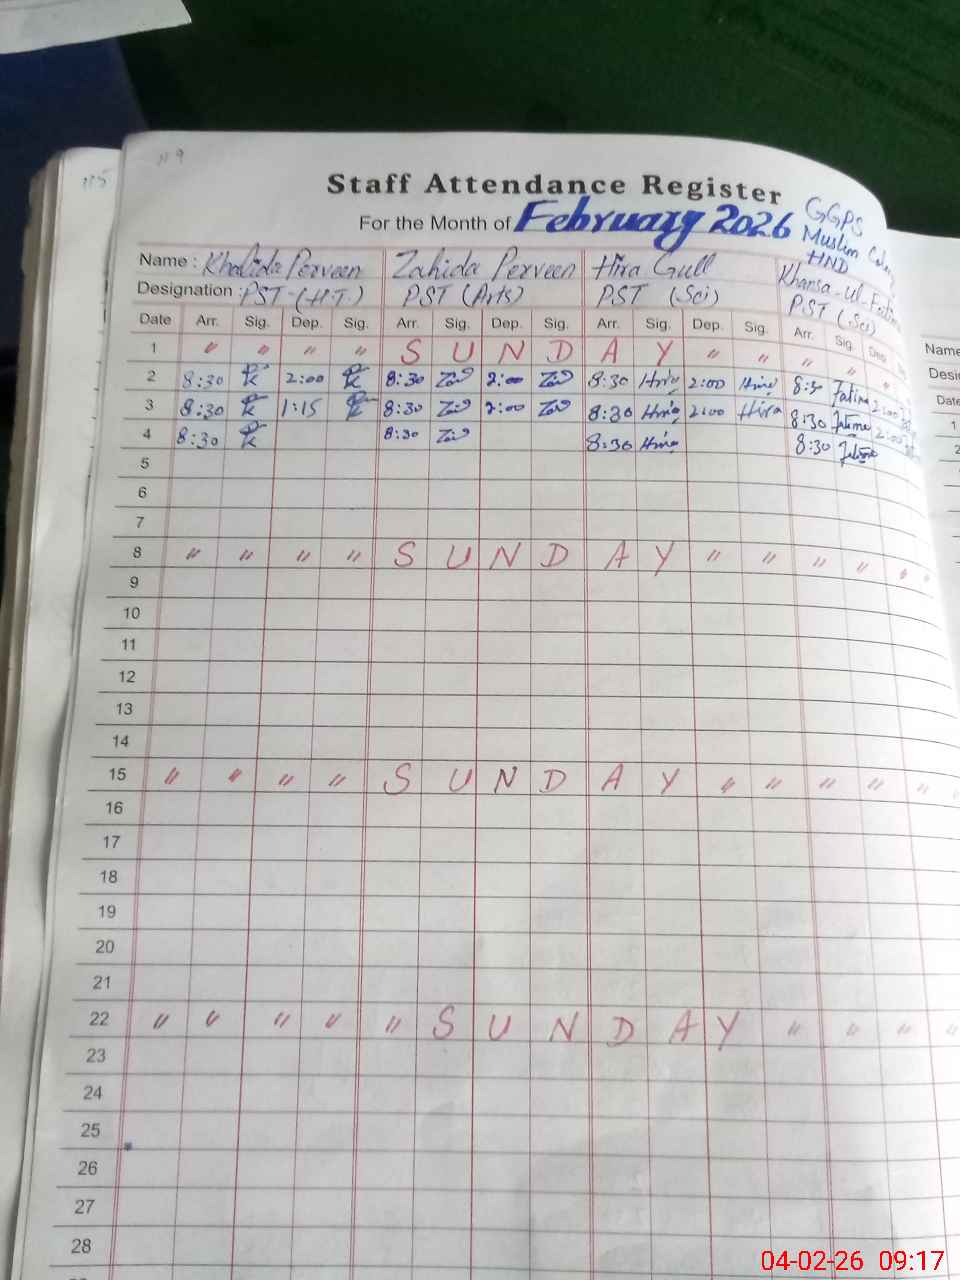 119
115
Staff Attendance Register
For the Month of February 2026
GGPS
Muslim Colony
HND
Name : Khalida Perveen Zahida Perveen Hira Gull Khansa-ul-Fatima
Designation : PST (H.T.) PST (Arts) PST (Sci) PST (Sci)
Date Arr. Sig. Dep. Sig. Arr. Sig. Dep. Sig. Arr. Sig. Dep. Sig. Arr. Sig. Dep.
1 " " " " S U N D A Y " " " " "
2 8:30 2:00 8:30 2:00 8:30 Hira 2:00 Hira 8:30 Fatima 2:00
3 8:30 1:15 8:30 2:00 8:30 Hira 2:00 Hira 8:30 Fatima 2:00
4 8:30 8:30 8:30 Hira 8:30 Fatima
5
6
7
8 " " " " S U N D A Y " " " " " "
9
10
11
12
13
14
15 " " " " S U N D A Y " " " " " "
16
17
18
19
20
21
22 " " " " " S U N D A Y " " " "
23
24
25
26
27
28
Name
Desig
Date
1
2
04-02-26 09:17